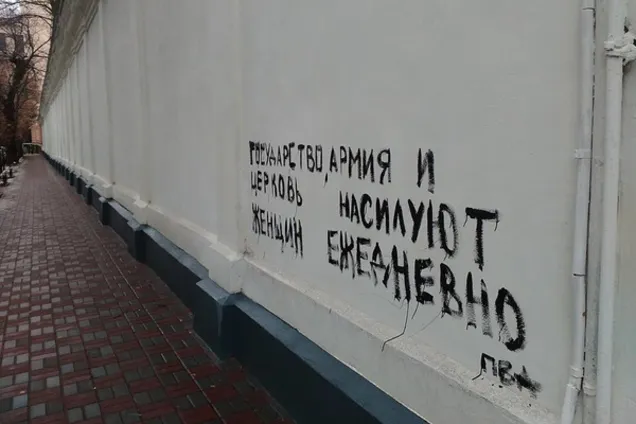 ГОСУДАРСТВО, АРМИЯ И
ЦЕРКОВЬ НАСИЛУЮТ
ЖЕНЩИН ЕЖЕДНЕВНО